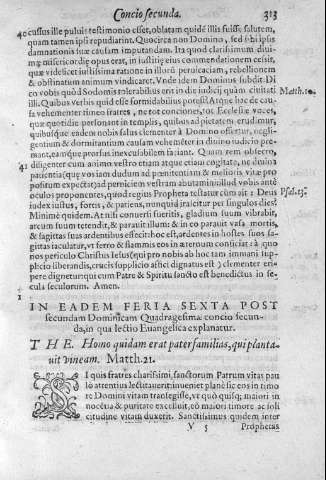 Concio secunda. 313
40 cussus ille pulueris testimonio esset, oblatam quidē illis fuisse salutem,
quam tamen ipsi repudiarint. Quocirca non Domino, sed sibi ipsis
damnationis suæ causam imputandam. Ita quod clarissimum diui-
næ misericordiæ opus erat, in iustitię eius commendationem cessit,
quæ videlicet iustissima ratione in illorū peruicaciam, rebellionem
& obstinatum animum vindicaret. Vnde idem Dominus subdit: Di
co vobis quòd Sodomis tolerabilius erit in die iudicij quàm ciuitati Matth.10.
illi. Quibus verbis quid esse formidabilius potest? Atque hæc de cau-
sa vehementer timeo fratres, ne tot conciones, tot Ecclesiæ voces,
quæ quotidie personant in templis, quibus ad pietatem erudimur,
quibusque eædem nobis salus clementer à Domino offertur, negli-
gentium & dormitantium causam vehementer in diuino iudicio pre-
mant, eamque prorsus inexcusabilem faciant. Quam rem obsecro,
41 diligenter cum animis vestro etiam atque etiam cogitate, ne diuina
patientia (quę vos iam dudum ad pœnitentiam & melioris vitæ pro
positum expectat) ad perniciem vestram abutamini: illud vobis ante
oculos proponentes, quod regius Propheta testatur cum ait: Deus Psal.
iudex iustus, fortis, & patiens, nunquid irascitur per singulos dies?
Minimè quidem. At nisi conuersi fueritis, gladium suum vibrabit,
arcum suum tetendit, & parauit illum: & in eo parauit vasa mortis,
& sagittas suas ardentibus effecit: hoc est, ardentes in hostes suos sa-
gittas iaculatur, vt ferro & flammis eos in æternum conficiat: à quo
nos periculo Christus Iesus (qui pro nobis ab hoc tam immani sup-
plicio liberandis, crucis supplicio affici dignatus est) clementer eri-
pere dignetur: qui cum Patre & Spiritu sancto est benedictus in se-
cula seculorum. Amen.
1
IN EADEM FERIA SEXTA POST
secundam Dominicam Quadragesimæ concio secun-
da, in qua lectio Euangelica explanatur.
THE. Homo quidam erat paterfamilias, qui planta-
uit vineam. Matth.21.
SI quis fratres charissimi, sanctorum Patrum vitas pau
lò attentius lectitauerit, inueniet planè sic eos in timo
re Domini vitam transegisse, vt quò quisque maiori in
nocētia & puritate excelluit, eò maiori timore ac soli
citudine vitam duxerit. Sanctissimus quidem inter
V 5 Prophetas